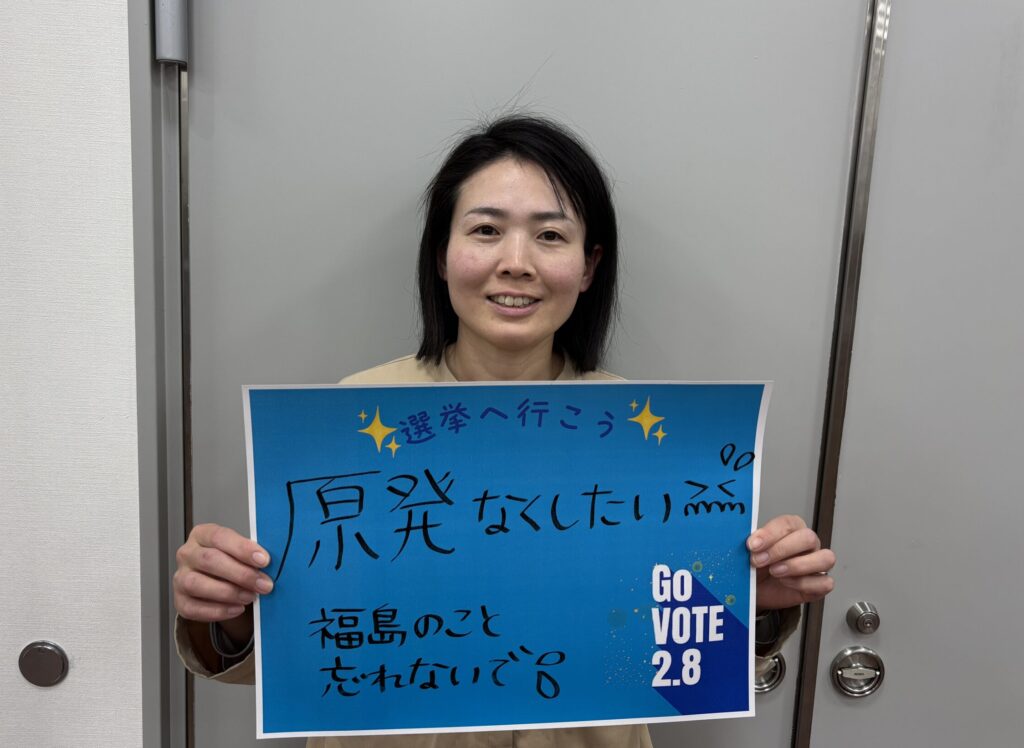 選挙へ行こう
原発なくしたい
福島のこと
忘れないで
GO
VOTE
2.8